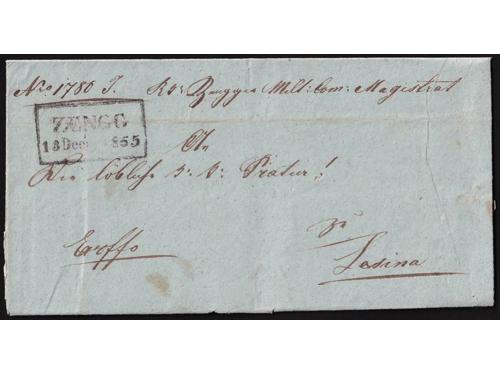 Nro 1780 J. Kk: Zengger Milt: Com: Magistrat
ZENGG
18 Dec 1855
An
Die löbliche k: k: Pratur!
zu
Exoffo
Lesina